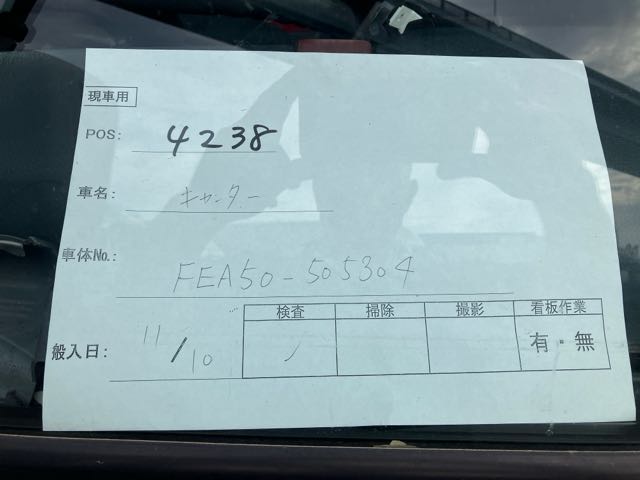 現車用
POS: 4238
車名: キャンター
車体No.: FEA50-505304
検査 掃除 撮影 看板作業
般入日: 11/10 有・無